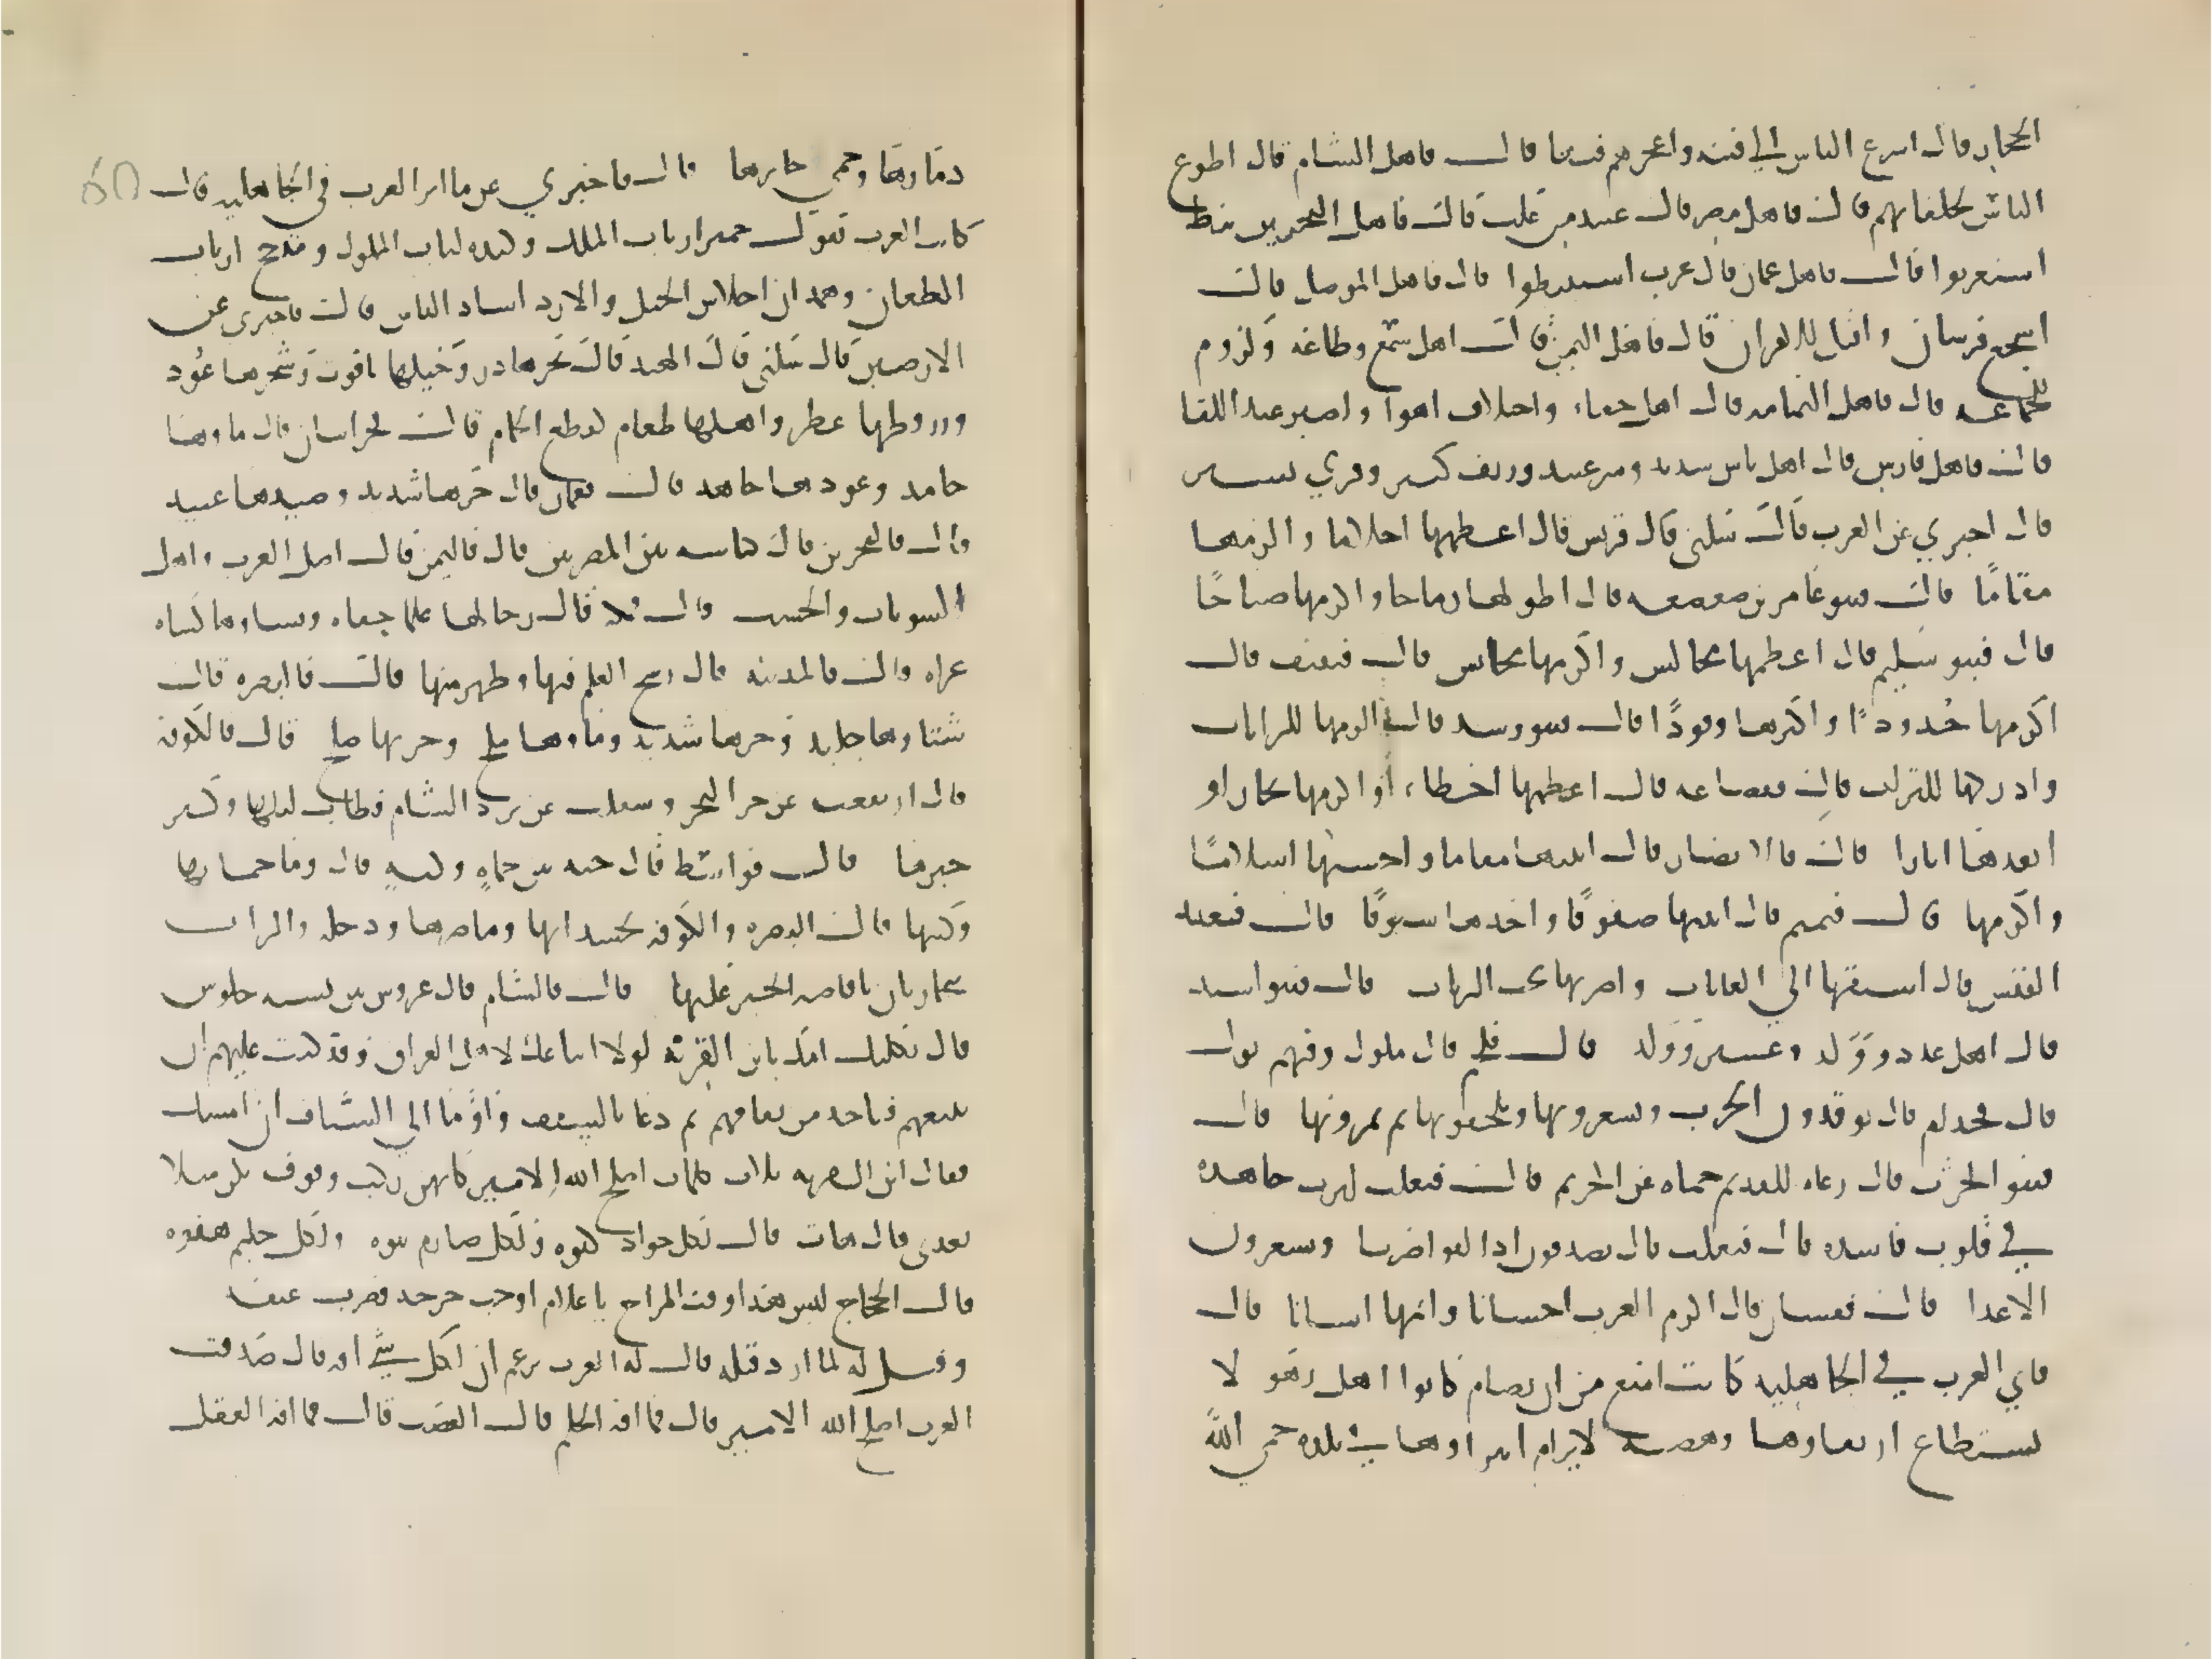 الحجاز قال اسرع الناس الي فتنه واعجزهم فيها قال فاهل الشام قال اطوع
الناس لخلفايهم قال فاهل مصر قال عبيد من غلب قال فاهل البحرين نبط
استعربوا قال فاهل عمان قال عرب استنبطوا قال فاهل الموصل قال
اشجع فرسان واقتل للاقران قال فاهل اليمن قال اهل سمع وطاعه ولزوم
للجماعه قال فاهل اليمامه قال اهل جفاء واختلاف اهوا واصبر عند اللقا
قال فاهل فارس قال اهل باس شديد وشر عتيد وريف كبير وقري يسير
قال اخبرني عن العرب قال سلني قال قريش قال اعظمها احلاما واكرمها
مقامًا قال فبنو عامر بن صعصعه قال اطولها رماحا واكرمها صباحًا
قال فبنو سليم قال اعظمها مجالس واكرمها محابس قال فثقيف قال
اكرمها جُدودًا واكثرها وفودًا قال فبنو زبيد قال الزمها للرايات
وادركها للترات قال فقضاعه قال اعظمها اخطاء، او اكرمها نجارا و
ابعدها اثارا قال فالانصار قال اثبتها مقاما واحسنها اسلامًا
واكرمها قال فتميم قال اثبتها صفوفًا واحدها سيوفًا قال فعبد
القيس قال اسبقها الي الغايات واضربها تحت الرايات قال فبنو اسد
قال اهل عدد وجلد وعسر ونكد قال فلخم قال ملوك وفيهم نوك
قال فجذام قال يوقدون الحرب ويسعرونها ويلحقونها ثم يمرونها قال
فبنو الحرث قال رعاه للقديم حماه عن الحريم قال فعك قال ليوث جاهده
في قلوب فاسده قال فتغلب قال يصدقون اذا لقوا ضربا ويسعرون
الاعدا قال فغسان قال اكرم العرب احسانا واثبتها انسابا قال
فاي العرب في الجاهليه كانت امنع من ان تضام كانوا اهل رهو لا
يستطاع ارتقاوها وهضبه لا يرام انتزاوها في بلده حمى الله
دمارها وحمى جارها قال فاخبرني عن ماثر العرب في الجاهليه قال
كانت العرب تقول حمير ارباب الملك وكنده لباب الملوك ومذحج ارباب
الطعان وهمدان احلاس الخيل والازد اساد الناس قال فاخبرني عن
الارضين قال سلني قال الهند قال بحرها در وجبلها ياقوت وشجرها عُود
وورقها عطر واهلها طغام كقطع الحمام قال فخراسان قال ماوها
جامد وعدوها جاحد قال فعمان قال حرها شديد وصيدها عتيد
قال فالبحرين قال كناسه بين المصرين قال فاليمن قال اصل العرب واهل
البيوتات والحسب قال فمكه قال رجالها علما جفاه ونساوها كساه
عراه قال فالمدينه قال رسخ العلم فيها وظهر منها قال فالبصره قال
شتاوها جليد وحرها شديد وماوها ملح وحربها صلح قال فالكوفه
قال ارتفعت عن حر البحر وسفلت عن برد الشام فطاب ليلها وكثر
خيرها قال فواسط قال جنه بين حماهٍ وكنهٍ قال وما حماتها
وكنتها قال البصره والكوفه يحسدانها وما ضرها ودجله والزاب
يتجاريان بافاضه الخير عليها قال فالشام قال عروس بين نسوه جلوس
قال ثكلتك امك يابن القريه لولا اتباعك لاهل العراق وقد كنت عليهم ان
تتبعهم فتاخذ من نفاقهم ثم دعا بالسيف واومَا الي السياف ان امسك
فقال ابن القريه ثلاث كلمات اصلح الله الامير كانهن ركب وقوف يكن مثلا
بعدي قال هات قال لكل جواد كبوه ولكل صارم نبوه ولكل حليم هفوه
قال الحجاج ليس هذا وقت المزاح يا غلام اوجب جرحه فضرب عنقه
وقيل له لما اراد قتله قال له العرب تزعم ان لكل شيء افه قال صدقت
العرب اصلح الله الامير قال فما افه الحلم قال الغضب قال فما افه العقل